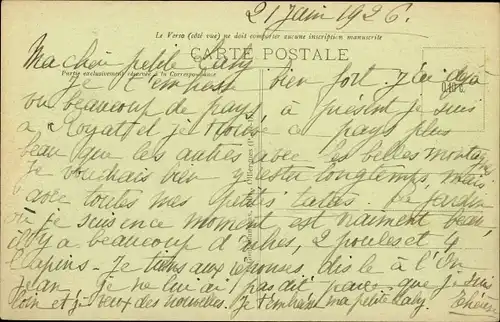 21 Juin 1926.
Le Verso (côté vue) ne doit comporter aucune inscription manuscrite
CARTE POSTALE
Ma chère petite
Partie exclusivement réservée à la Correspondance
Je t'embrasse bien fort. J'ai déjà
vu beaucoup de pays, à présent je suis
à Royat et je trouve ce pays plus
beau que les autres avec les belles montagnes
Je voudrais bien y rester longtemps, mais
avec toutes mes petites tantes. Le jardin
où je suis en ce moment est vraiment beau,
il y a beaucoup d'arbres, 2 poules et 4
lapins - Je tiens aux réponses, dis le à l'On
Jean. Je ne lui ai pas dit parce que je suis
loin et je veux des nouvelles. Je t'embrasse ma petite